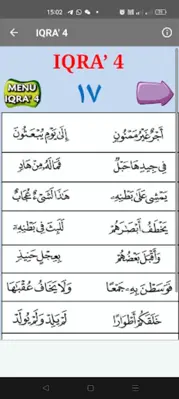 15:02
IQRA' 4
IQRA' 4
MENU
IQRA' 4
١٧
أَجْرٌ غَيْرُ مَمْنُونٍ
إِلَى يَوْمِ يُبْعَثُونَ
فِي جِيدِهَا حَبْلٌ
فَمَالَهُ مِنْ هَادٍ
يَمْشِي عَلَى بَطْنِهِ
هَذَا لَشَيْءٌ عُجَابٌ
يَخْطَفُ أَبْصَارَهُمْ
لَلَبِثَ فِي بَطْنِهِ
وَأَقْبَلَ بَعْضُهُمْ
بِعِجْلٍ حَنِيذٍ
فَوَسَطْنَ بِهِ جَمْعًا
وَلَا يَخَافُ عُقْبَاهَا
خَلَقَكُمْ أَطْوَارًا
لَمْ يَلِدْ وَلَمْ يُولَدْ